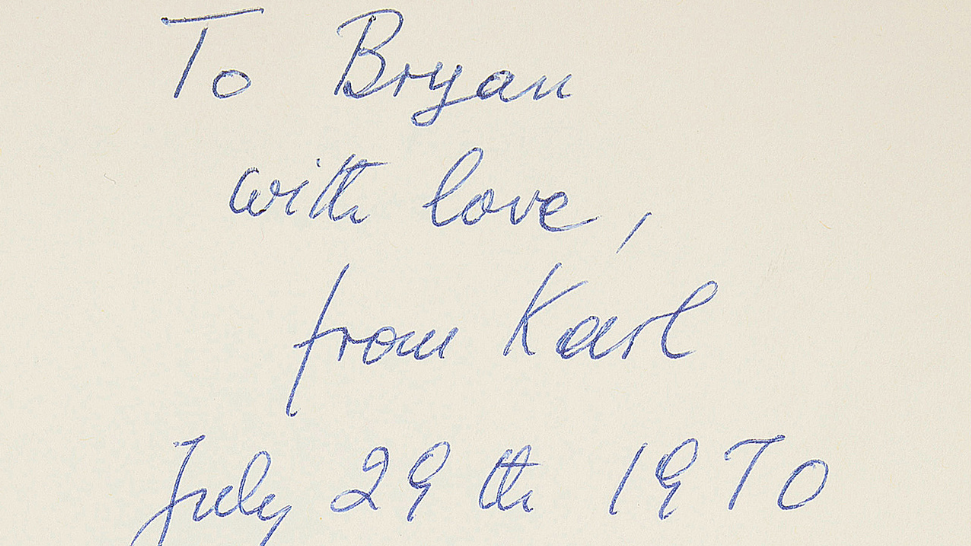 To Bryan
with love,
from Karl
July 29th 1970